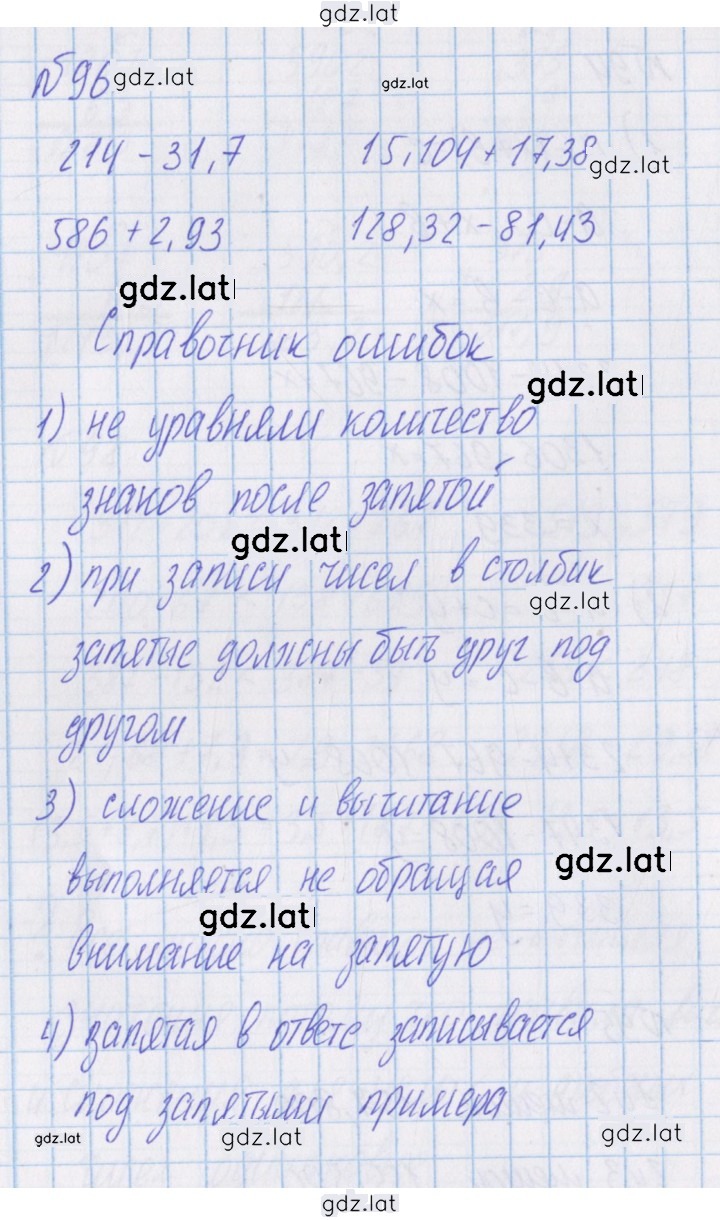 gdz.lat
№96 gdz.lat gdz.lat
214 - 31,7 15,104 + 17,38 gdz.lat
586 + 2,93 128,32 - 81,43
gdz.lat
Справочник ошибок
gdz.lat
1) не уравняли количество
знаков после запятой
gdz.lat
2) при записи чисел в столбик
gdz.lat
запятые должны быть друг под
другом
3) сложение и вычитание
gdz.lat
выполняется не обращая
gdz.lat
внимание на запятую
4) запятая в ответе записывается
под запятыми примера
gdz.lat gdz.lat gdz.lat
gdz.lat